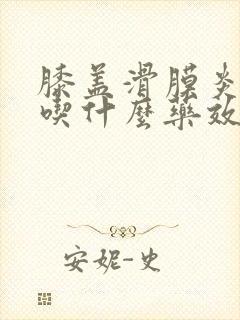 膝盖滑膜炎
喫什麼藥效
安妮-史